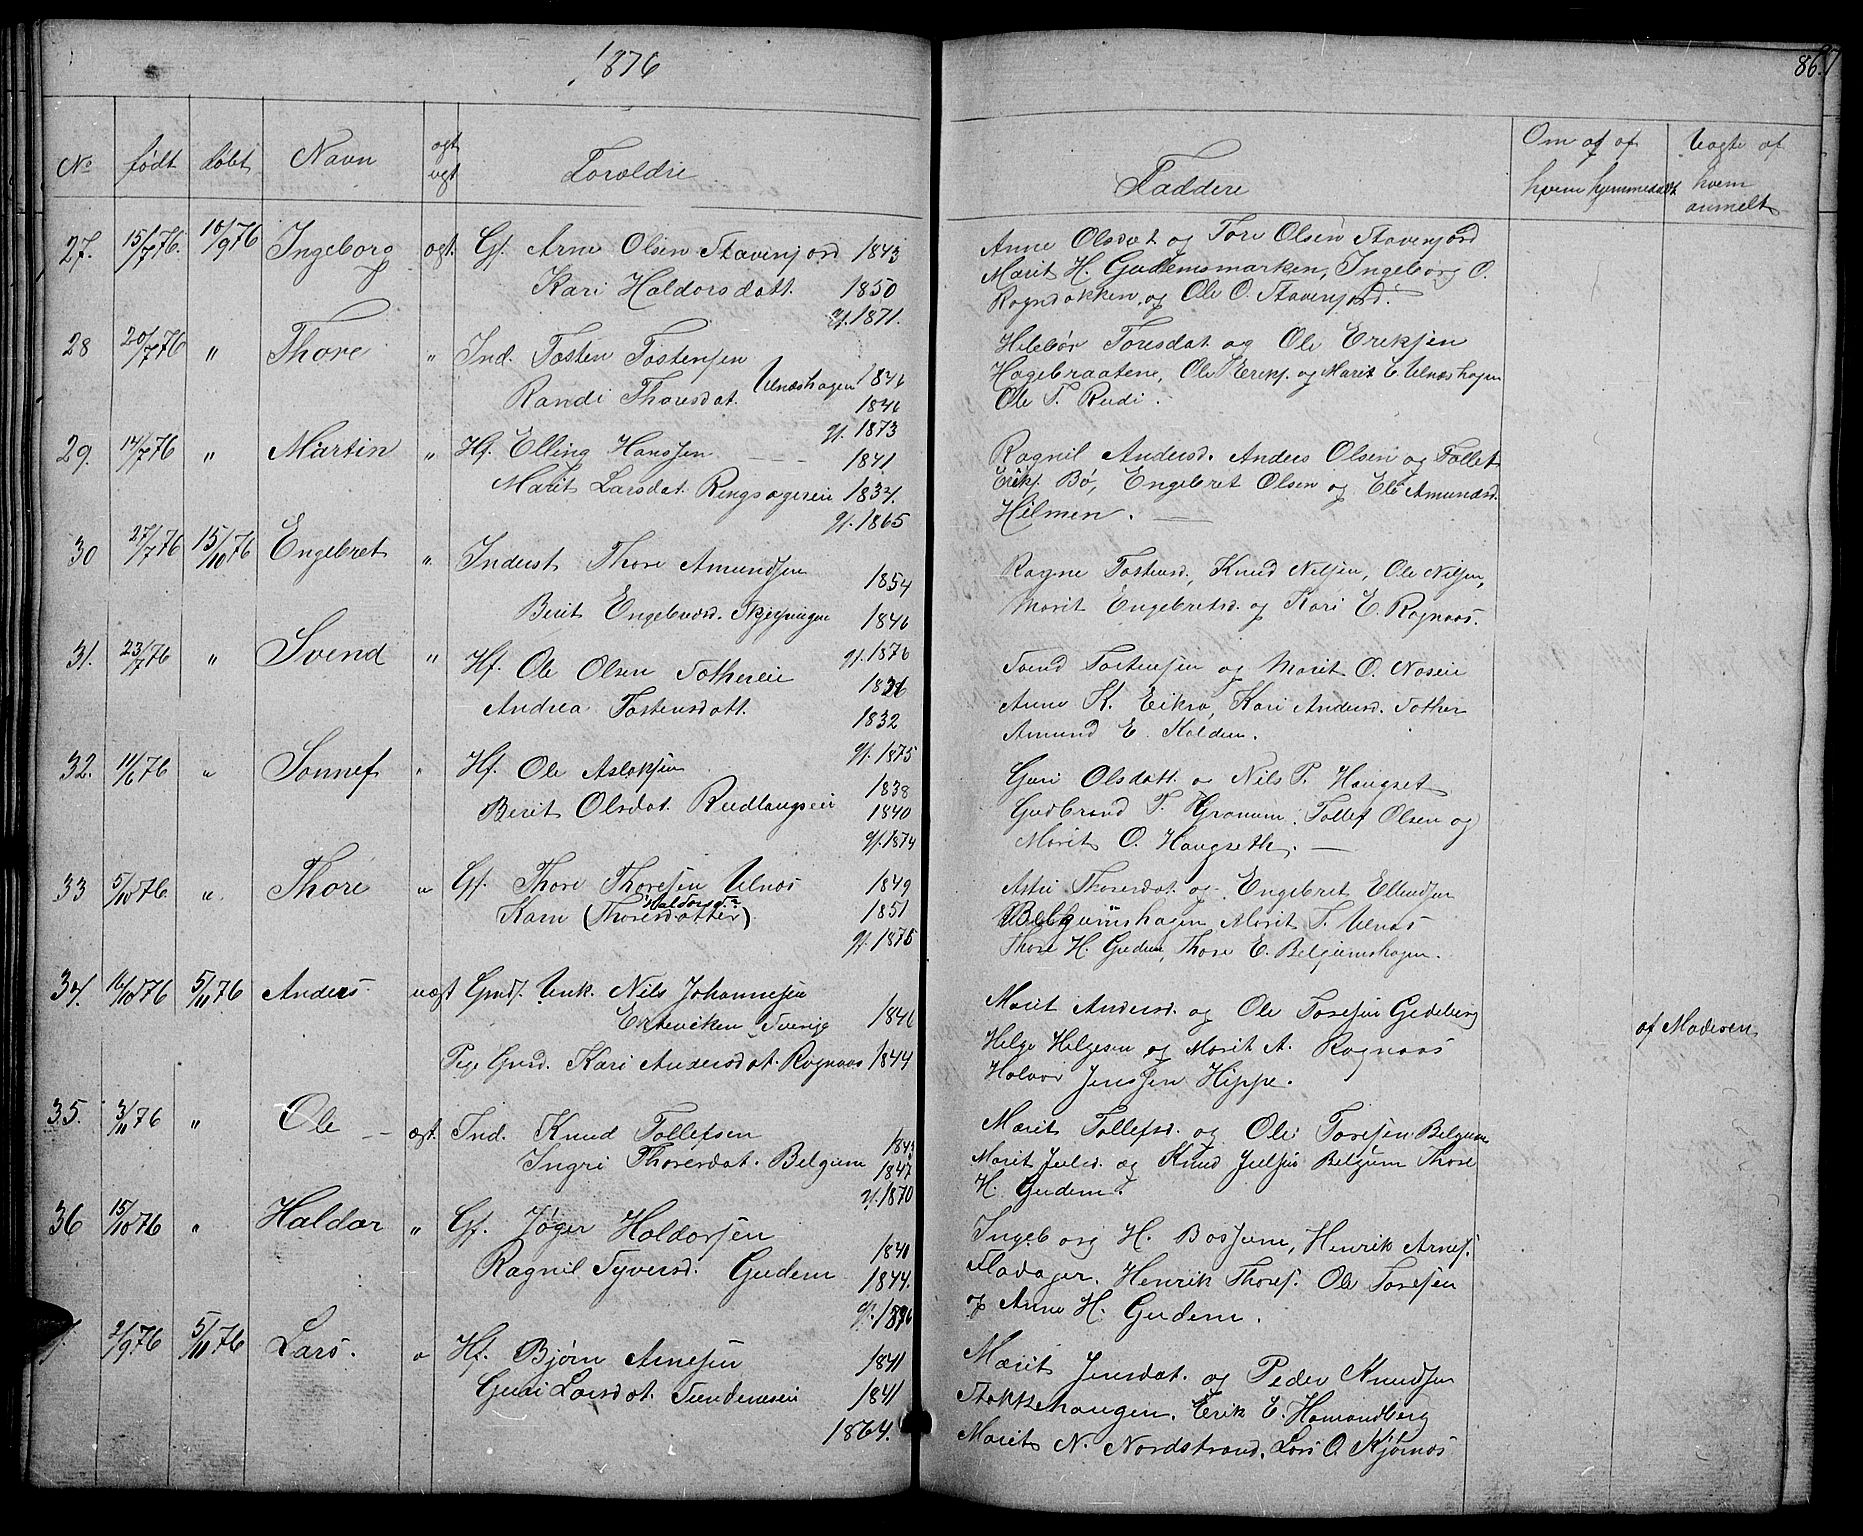 1876
86.
No født døbt Navn ægt uægt Forældre Faddere Om af af hvem hjemmedøbt Vagte af hvem anmeldt
27. 15/7 76. 10/9 76 Ingeborg ægt. Gf. Arne Olsen Stavenjord 1843
Kari Haldorsdatt. 1850
gf. 1871.
Anne Olsdat og Tore Olsen Stavenjord
Marit H. Gudemsmarken, Ingeborg O.
Rogndokken, og Ole O. Stavenjord.
28 20/7 76 " Thore " Ind. Tosten Tostensen
Randi Thoresdat. Ulnæshagen 1846
1846
gf. 1873
Hilebør Toresdat og Ole Eriksen
Hagebraatene, Ole Eriks. og Marit E. Ulnæshagen
Ole T. Rudi.
29. 14/7 76 " Martin " Hf. Elling Hanssen 1841
Marit Larsdat. Ringsagereie 1834.
gf. 1865
Ragnil Andersd. Anders Olsen og Tollef
Eriks. Bø, Engebret Olsen og Eli Amundsd.
Hilmen.
30 27/7 76 15/10 76 Engebret " Inderst Thore Amundsen 1854
Berit Engebrdsd. 1846
gf. 1876
Ragne Tostensd., Knud Nilsen, Ole Nilsen,
Marit Engebretsd. og Kari E. Rognaas.
31. 23/7 76 " Svend " Hf. Ole Olsen Sothereie 1836
Andrea Tostensdatt. 1832
gf. 1875
Svend Tostensen og Marit O. Noseie
Anne K. Eikro, Kari Andersd. Sother
Amund E. Kolden.
32. 14/6 76 " Sonnef " Hf. Ole Aslaksen 1838
Berit Olsdat. Rudlangseie 1840
gf. 1874
Guri Olsdatt. og Nils P. Haugset
Gudbrand T. Granum. Tollef Olsen og
Marit O. Haugseth.
33 5/10 76. " Thore " Gf. Thore Thoresen Ulnæs 1849
Haldorsd.
Kari (Thoresdatter) 1851
gf. 1875
Astri Thoresdat og Engebret Ellendsen
Belgumshagen Marit T. Ulnæs
Thore H. Gudem, Thore E. Belgumshagen.
34. 16/10 76 5/11 76 Anders uægt Gmds. Unk. Nils Johannesen
Erteviken Sverige 1846
Pige Gmd. Kari Andersdat. Rognaas 1844
Marit Andersd. og Ole Toresen Gedeberg
Helge Helgesen og Marit A. Rognaas
Halvor Jenssen Hippe.
af Moderen
35. 3/11 76 " Ole ægt. Ind. Knud Tollefsen 1843
Ingri Thoresdat. Belgum 1847
gf. 1870
Marit Tollefsd. og Ole Toresen Belgum
Marit Juls. og Knud Julsen Belgum Thore
H. Gudem.
36 15/10 76 " Haldor " Gf. Jøger Haldorsen 1840
Ragnil Syversd. Gudem 1844.
gf. 1876
Ingeborg H. Bossum, Henrik Arnes.
Fladager. Henrik Thores. Ole Toresen
og Anne H. Gudem.
2/9 76 5/11 76 Lars. " Hf. Bjørn Arnesen 1841
Guri Larsdat. Sundeneseie 1841
1864.
Marit Jensdat. og Peder Knudsen
Stokkehaugen. Erik E. Hamandberg
Marit N. Nordstrand. Lars O. Kjørnæs